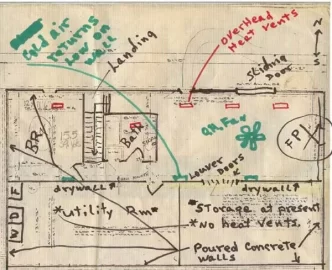 Cold Air
returns
Low on
wall
Landing
overHead
Heat vents
N
S
Sliding
Door
BR
Bath
GR Fan
F.P.
Louver Doors
drywall
drywall
W D F
*Utility Rm*
*Storage at present
*No heat vents.
Poured Concrete
walls